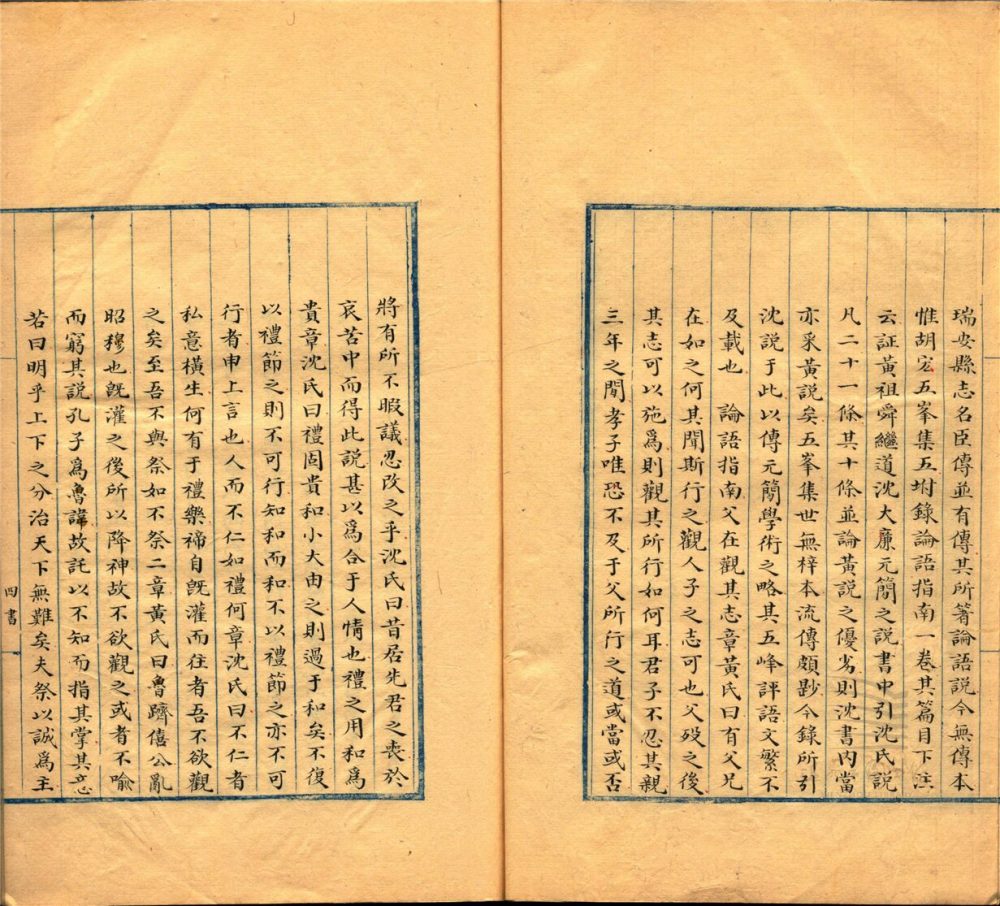 瑞安縣志名臣傳並有傳其所箸論語說今無傳本
惟胡宏五峯集五坿錄論語指南一卷其篇目下注
云証黃祖舜繼道沈大廉元簡之說書中引沈氏說
凡二十一條其十條並論黃說之優劣則沈書內當
亦采黃說矣五峯集世無梓本流傳頗尟今錄所引
沈說于此以傳元簡學術之略其五峰評語文繁不
及載也　論語指南父在觀其志章黃氏曰有父兄
在如之何其聞斯行之觀人子之志可也父歿之後
其志可以施爲則觀其所行如何耳君子不忍其親
三年之閒孝子唯恐不及于父所行之道或當或否
將有所不暇議忍改之乎沈氏曰昔居先君之喪於
哀苦中而得此說甚以爲合于人情也禮之用和爲
貴章沈氏曰禮固貴和小大由之則過于和矣不復
以禮節之則不可行知和而和不以禮節之亦不可
行者申上言也人而不仁如禮何章沈氏曰不仁者
私意橫生何有于禮樂禘自旣灌而往者吾不欲觀
之矣至吾不與祭如不祭二章黃氏曰魯躋僖公亂
昭穆也旣灌之後所以降神故不欲觀之或者不喩
而窮其說孔子爲魯諱故託以不知而指其掌其意
若曰明乎上下之分治天下無難矣夫祭以誠爲主
四書